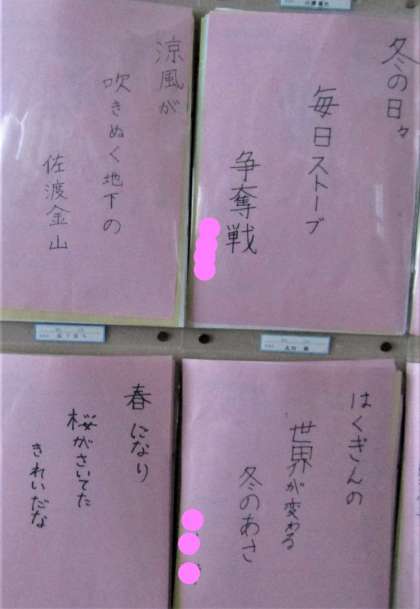 冬の日々
毎日ストーブ
争奪戦
涼風が
吹きぬく地下の
佐渡金山
はくぎんの
世界が変わる
冬のあさ
春になり
桜がさいてた
きれいだな